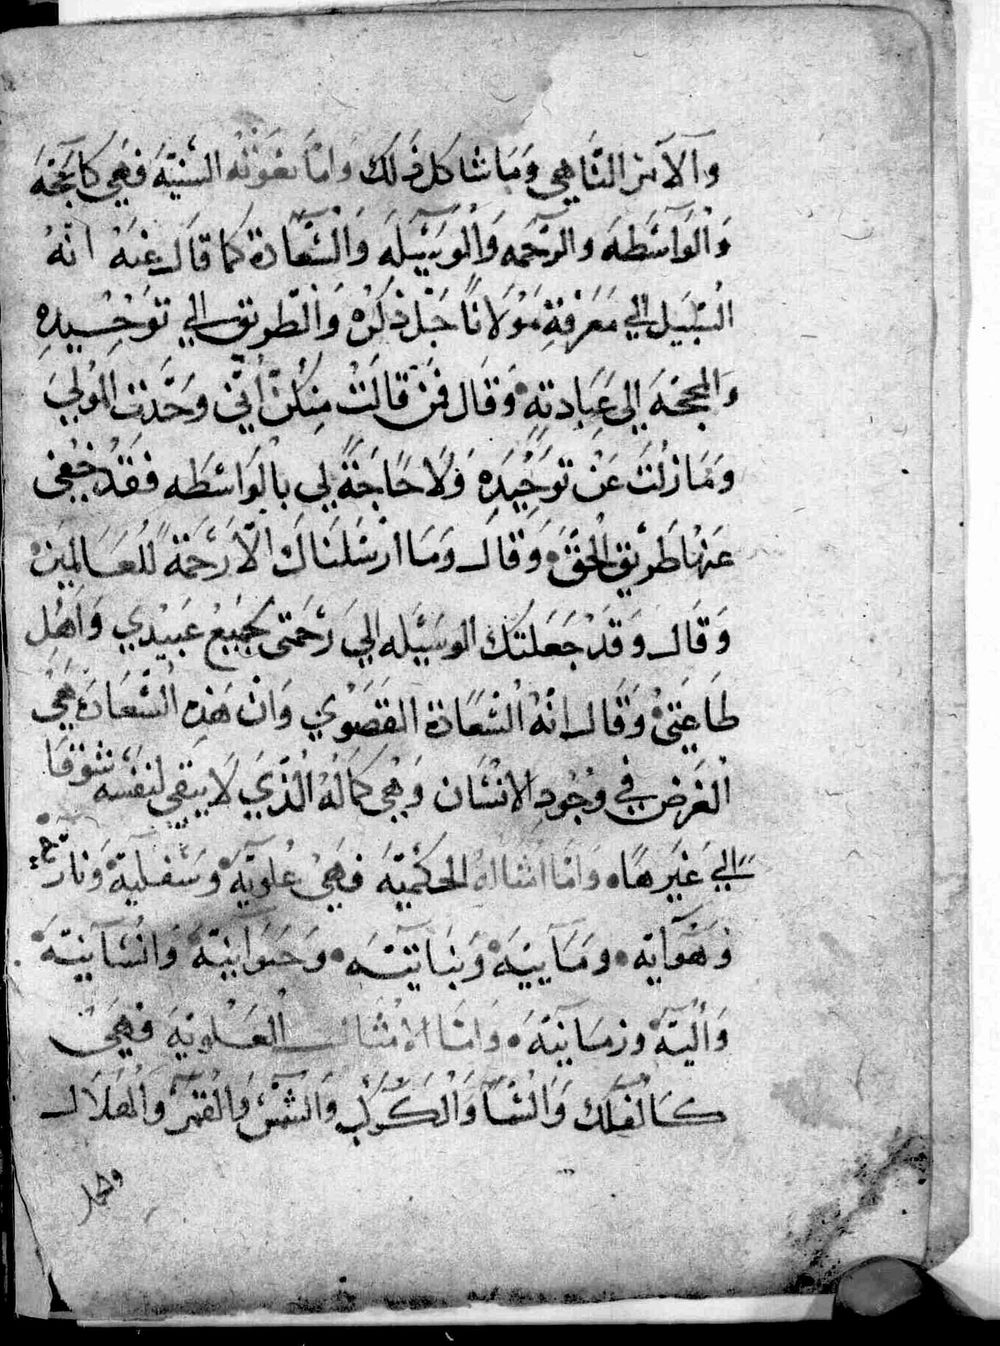 والآمر الناهي وَمَا شاكل ذلك وَامّا نعوته السّنيّة فهَي كالحجّة
وَالوَاسَطه والرحمه وَالوسَيله وَالسَّعَادة كما قال عنهُ انّهُ
السَّبيل الي مَعرَفةِ مَوْلَانا جَلّ ذكرُه وَالطّريق الي توحيدِه
وَالمحجّة الي عبَادتهِ وَقال فمَنْ قالتْ مِنكُنّ انّني وَحَّدت المولَي
وَمَا زلت عَنْ توحَيدِه وَلَا حَاجَةً لي بالوَاسَطه فقدْ خفي
عَنها طَريق الحقّ وَقال وَمَا ارْسَلنَاك الّا رَحَمةً للعَالمين
وَقال وَقدْ جَعَلتك الوسَيله الي رَحمَتي لجميْع عَبيدي وَاهْل
طَاعَتي وَقَال انّهُ السّعَادة القصْوي وَانْ هَذِه السَّعَادة هَي
الغرَض في وجُودِ الانسَان وَهْي كمالهُ الذَّي لَا يبقي لنفسه تشوّقا
الي غيَرهَا وَامّا امثاله الحكميّة فهَي عُلويّة وَسَفليّة وَناريّة
وَهَوَآيّه وَمَآييّة وَنبَاتيّه وَحَيوَانيّة وَانسَانيّة
وَآليّة وزمَانيّة وَامّا الامثال العَلويّة فهَي
كالفلك وَالسّمَآ وَالكوكب وَالشّمس وَالقمَر وَالهَلال